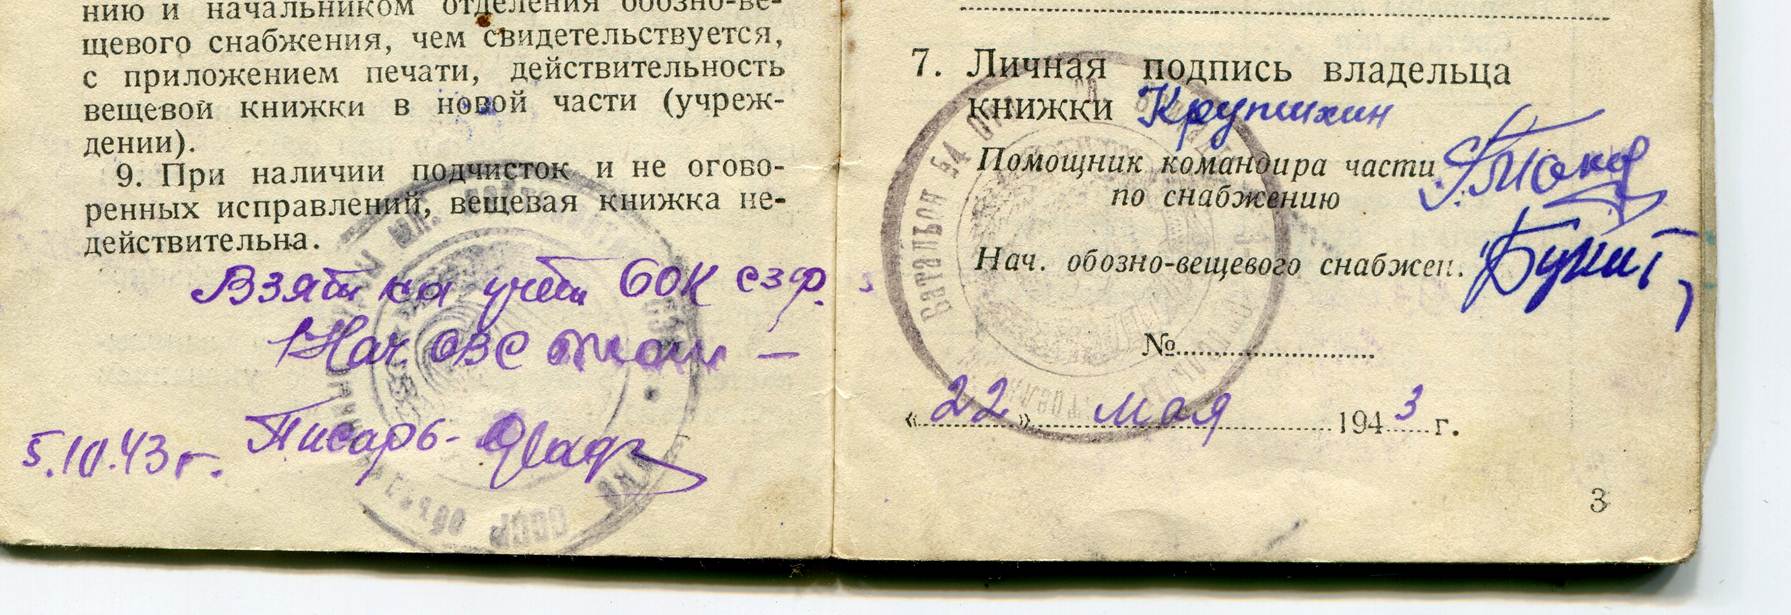 нию и начальником отделения обозно-ве-
щевого снабжения, чем свидетельствуется,
с приложением печати, действительность
вещевой книжки в новой части (учреж-
дении).
9. При наличии подчисток и не огово-
ренных исправлений, вещевая книжка не-
действительна.
Взят на учёт 60К СЗФ.
Нач ОВС
Писарь-
5.10.43 г.
7. Личная подпись владельца
книжки Крупихин
Помощник командира части
по снабжению
Нач. обозно-вещевого снабжен.
№
Батальон 54
СССР
« 22 » мая 1943 г.
3